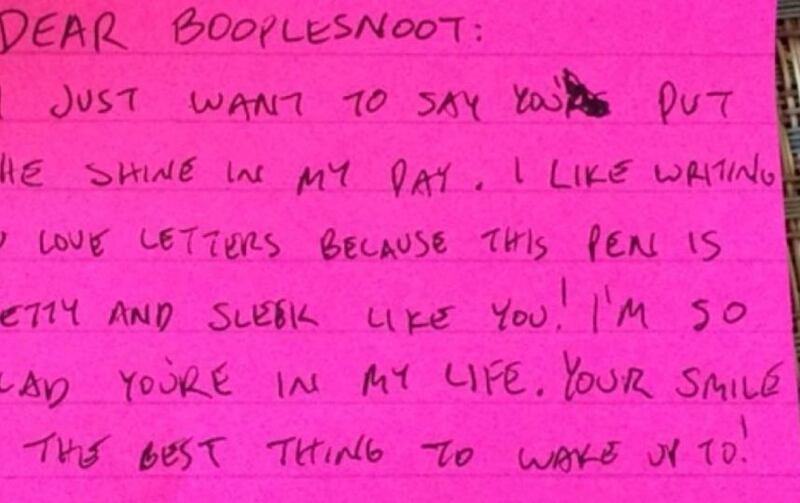 DEAR BOOPLESNOOT:
I JUST WANT TO SAY YOU PUT
HE SHINE IN MY DAY. I LIKE WRITING
LOVE LETTERS BECAUSE THIS PEN IS
ETTY AND SLEEK LIKE YOU! I'M SO
LAD YOU'RE IN MY LIFE. YOUR SMILE
THE BEST THING TO WAKE UP TO!